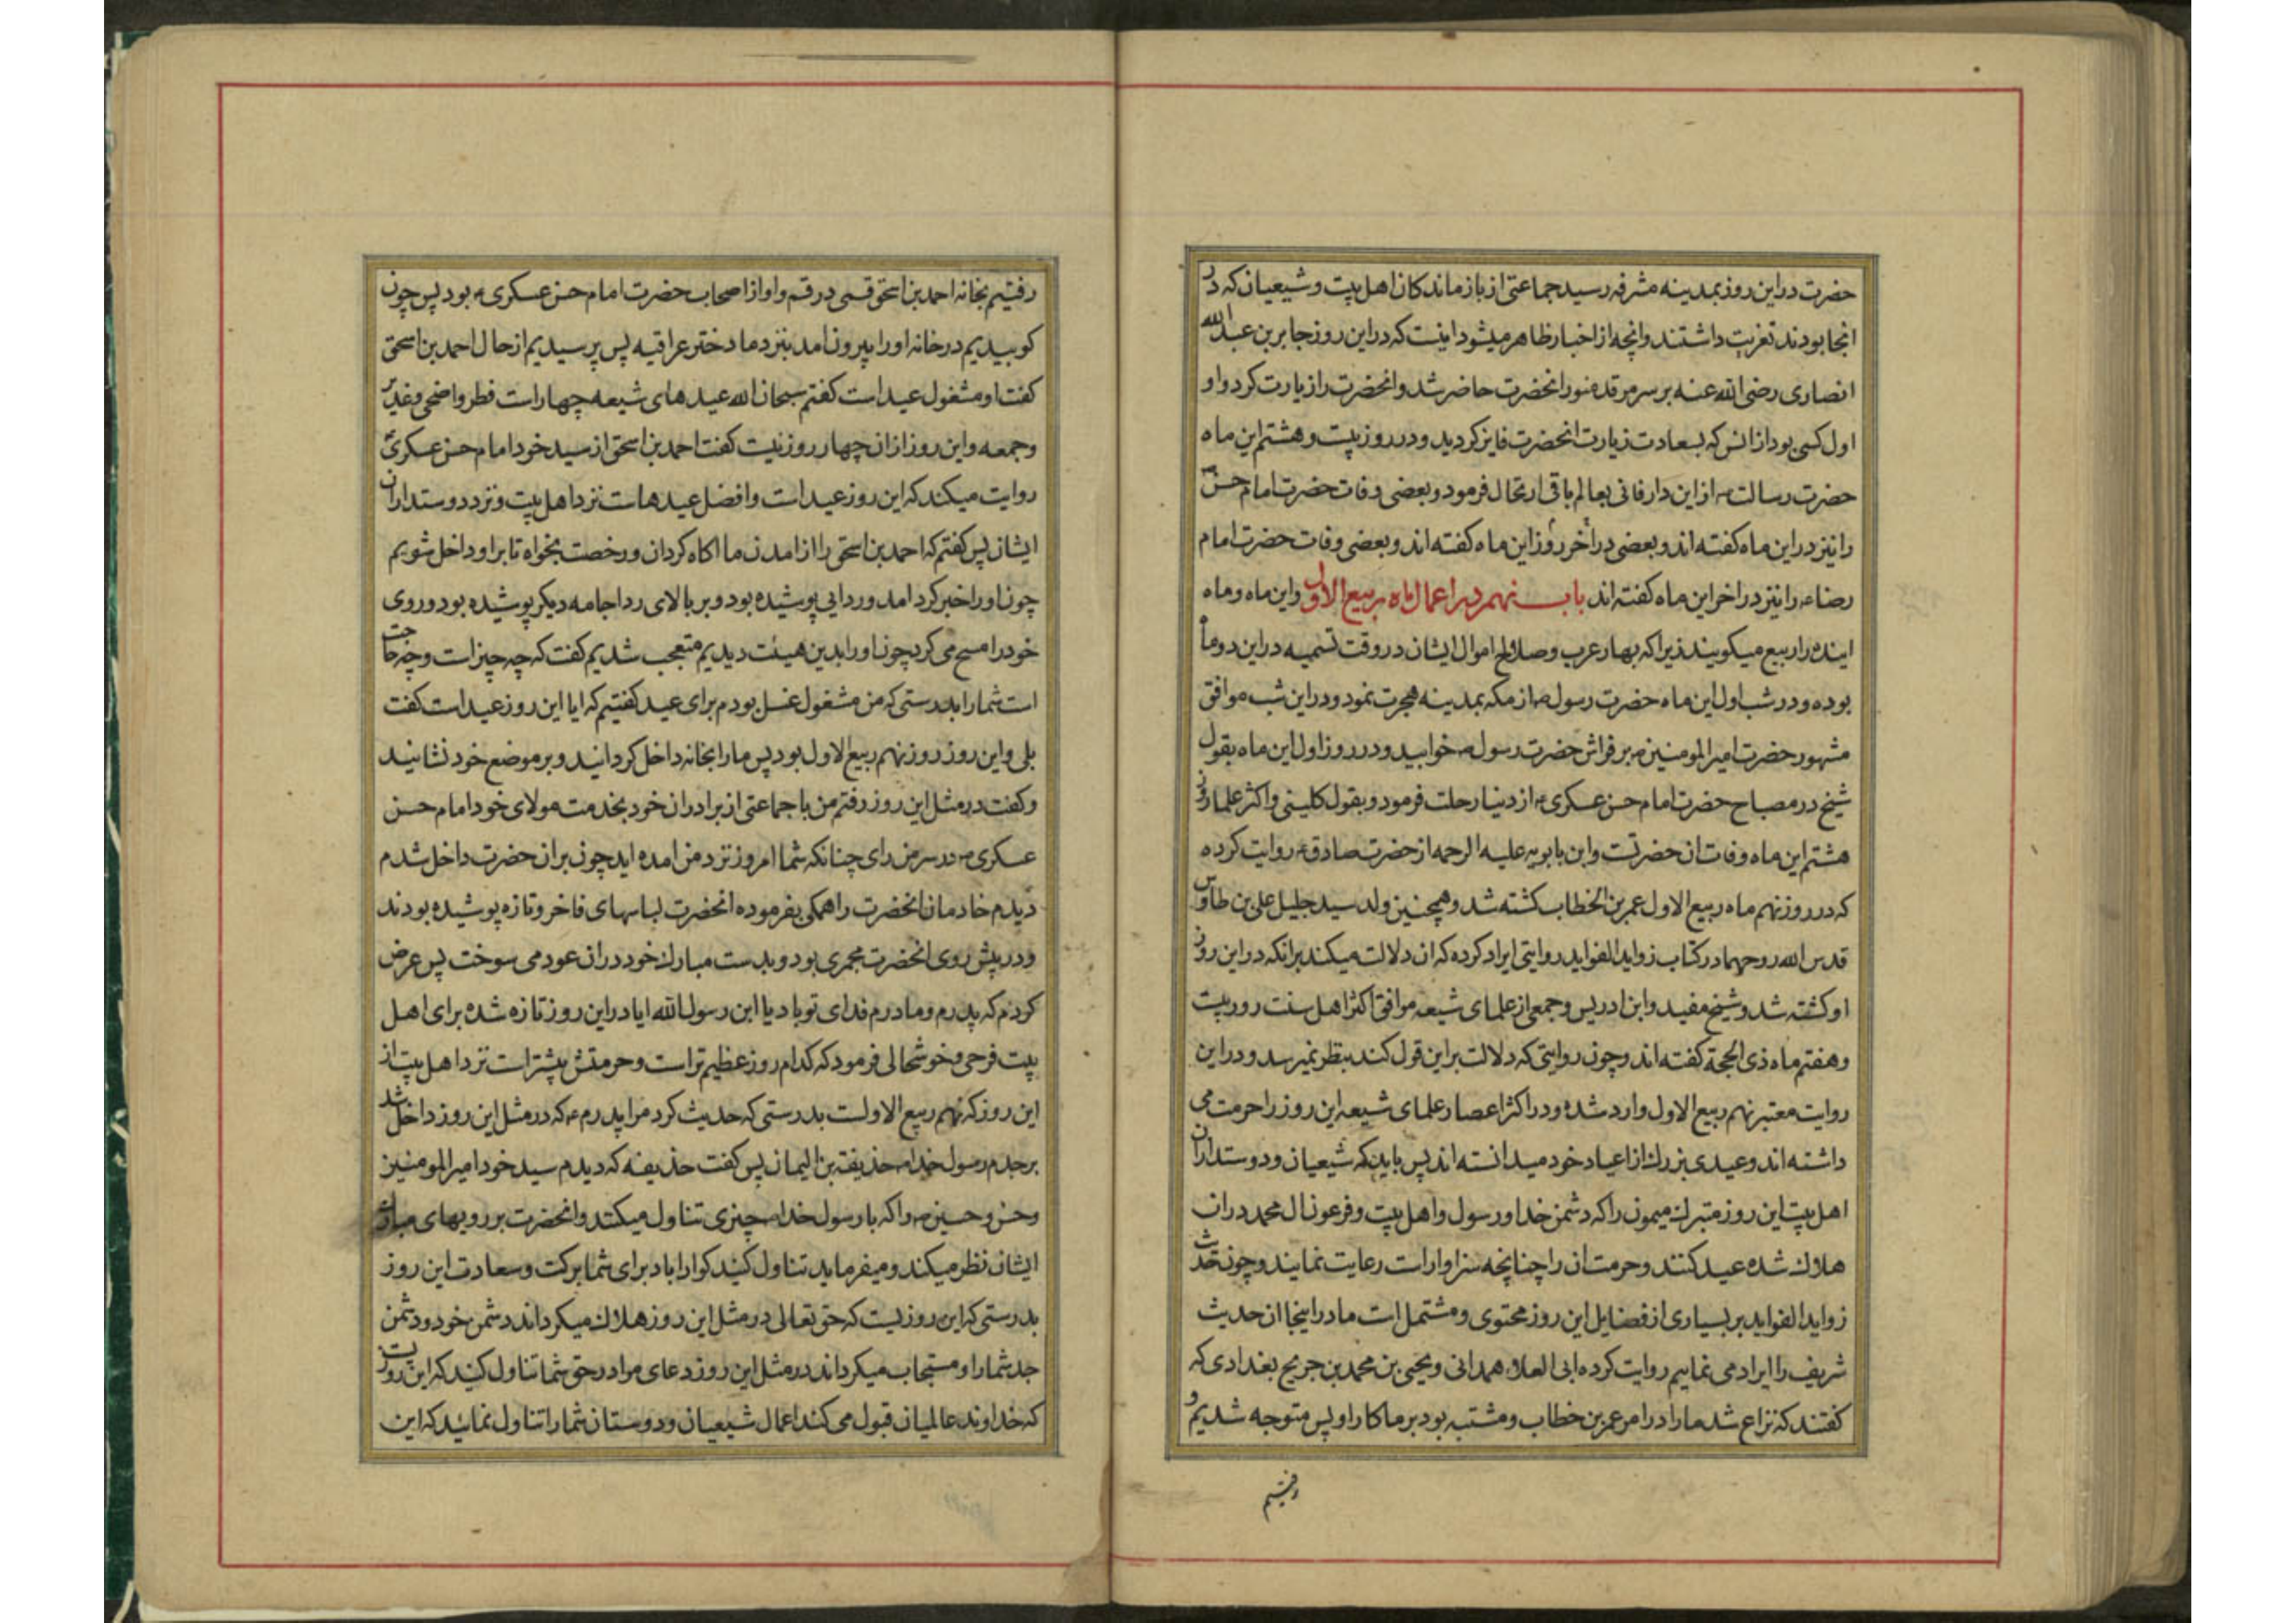 حضرت در این روز بمدینه مشرفه رسید جماعتی از بازماندکان اهل بیت و شیعیان که در
انجا بودند تعزیت داشتند و انچه از اخبار ظاهر میشود اینست که در این روز جابر بن عبد الله
انصاری رضی الله عنه بر سر مرقد منور انحضرت حاضر شد و انحضرت را زیارت کرد و او
اول کسی بود از انس که بسعادت زیارت انحضرت فایز کردید و در روز بیست و هشتم این ماه
حضرت رسالت ص از این دار فانی بعالم باقی ارتحال فرمود و بعضی وفات حضرت امام حسن ع
را نیز در این ماه کفته اند و بعضی در آخر روز این ماه کفته اند و بعضی وفات حضرت امام
رضا ع را نیز در اخر این ماه کفته اند باب نهم در اعمال ماه ربیع الاول و این ماه و ماه
اینده را ربیع میکویند زیرا که بهار عرب و صلاح اموال ایشان در وقت تسمیه در این دو ماه
بوده و در شب اول این ماه حضرت رسول ص از مکه بمدینه هجرت نمود و در این شب موافق
مشهور حضرت امیر المومنین ع بر فراش حضرت رسول ص خوابید و در روز اول این ماه بقول
شیخ در مصباح حضرت امام حسن عسکری ع از دنیا رحلت فرمود و بقول کلینی و اکثر علما روز
هشتم این ماه وفات ان حضرتست و ابن بابویه علیه الرحمه از حضرت صادق ع روایت کرده
که در روز نهم ماه ربیع الاول عمر بن الخطاب کشته شد و همچنین ولد سید جلیل علی بن طاوس
قدس الله روحهما در کتاب زواید الفواید روایتی ایراد کرده که ان دلالت میکند بر انکه در این روز
او کشته شد و شیخ مفید و ابن ادریس و جمعی از علمای شیعه موافق اکثر اهل سنت روز بیست
و هفتم ماه ذی الحجة کفته اند و چون روایتی که دلالت بر این قول کند بنظر نمیرسد و در این
روایت معتبر نهم ربیع الاول وارد شده و در اکثر اعصار علمای شیعه این روز را حرمت می
داشته اند و عیدی بزرك از اعیاد خود میدانسته اند پس باید که شیعیان و دوستداران
اهل بیت این روز متبرك میمون را که دشمن خدا و رسول و اهل بیت و فرعون ال محمد در ان
هلاك شده عید کنند و حرمت ان را چنانچه سزاوار است رعایت نمایند و چون حدیث
زواید الفواید بر بسیاری از فضایل این روز محتوی و مشتمل است ما در اینجا ان حدیث
شریف را ایراد می نماییم روایت کرده ابی العلاء همدانی و یحیی بن محمد بن جریح بغدادی که
کفتند که نزاع شد ما را در امر عمر بن خطاب و مشتبه بود بر ما کار او پس متوجه شدیم و
رفتیم
رفتیم بخانه احمد بن اسحق قمی در قم و او از اصحاب حضرت امام حسن عسکری ع بود پس چون
کوبیدیم در خانه او را بیرون امد بنزد ما دختر عراقیه پس پرسیدیم از حال احمد بن اسحق
کفت او مشغول عید است کفتم سبحان الله عید های شیعه چهار است فطر و اضحی و غدیر
و جمعه و این روز از ان چهار روز نیست کفت احمد بن اسحق از سید خود امام حسن عسکری ع
روایت میکند که این روز عید است و افضل عیدهاست نزد اهل بیت و نزد دوستداران
ایشان پس کفتم که احمد بن اسحق را از امدن ما اکاه کردان و رخصت بخواه تا بر او داخل شویم
چون او را خبر کرد امد و ردایی پوشیده بود و بر بالای ردا جامه دیکر پوشیده بود و روی
خود را مسح می کرد چون او را بدین هیئت دیدیم متعجب شدیم کفت که چه چیز است و چه حاجت
است شما را بدرستی که من مشغول غسل بودم برای عید کفتیم که ایا این روز عید است کفت
بلی و این روز روز نهم ربیع الاول بود پس ما را بخانه داخل کردانید و بر موضع خود نشانید
و کفت در مثل این روز رفتم من با جماعتی از برادران خود بخدمت مولای خود امام حسن
عسکری ع در سر من رای چنانکه شما امروز نزد من امده اید چون بر ان حضرت داخل شدم
دیدم خادمان انحضرت را همکی بفرموده انحضرت لباسهای فاخر و تازه پوشیده بودند
و در پیش روی انحضرت مجمری بود و بدست مبارك خود در ان عود می سوخت پس عرض
کردم که پدرم و مادرم فدای تو باد یا ابن رسول الله ایا در این روز تازه شده برای اهل
بیت فرحی و خوشحالی فرمود که کدام روز عظیم تر است و حرمتش بیشتر است نزد اهل بیت از
این روز که نهم ربیع الاولست بدرستی که حدیث کرد مرا پدرم ع که در مثل این روز داخل شد
بر جدم رسول خدا ص حذیفة بن الیمان پس کفت حذیفه که دیدم سید خود امیر المومنین
و حسن و حسین ع را که با رسول خدا ص چیزی تناول میکنند و انحضرت بر رویهای مبارك
ایشان نظر میکند و میفرماید تناول کنید کوارا باد برای شما برکت و سعادت این روز
بدرستی که این روزیست که حق تعالی در مثل این روز هلاك میکرداند دشمن خود و دشمن
جد شما را و مستجاب میکرداند در مثل این روز دعای مادر حق شما تناول کنید که این روزیست
که خداوند عالمیان قبول می کند اعمال شیعیان و دوستان شما را تناول نمائید که این